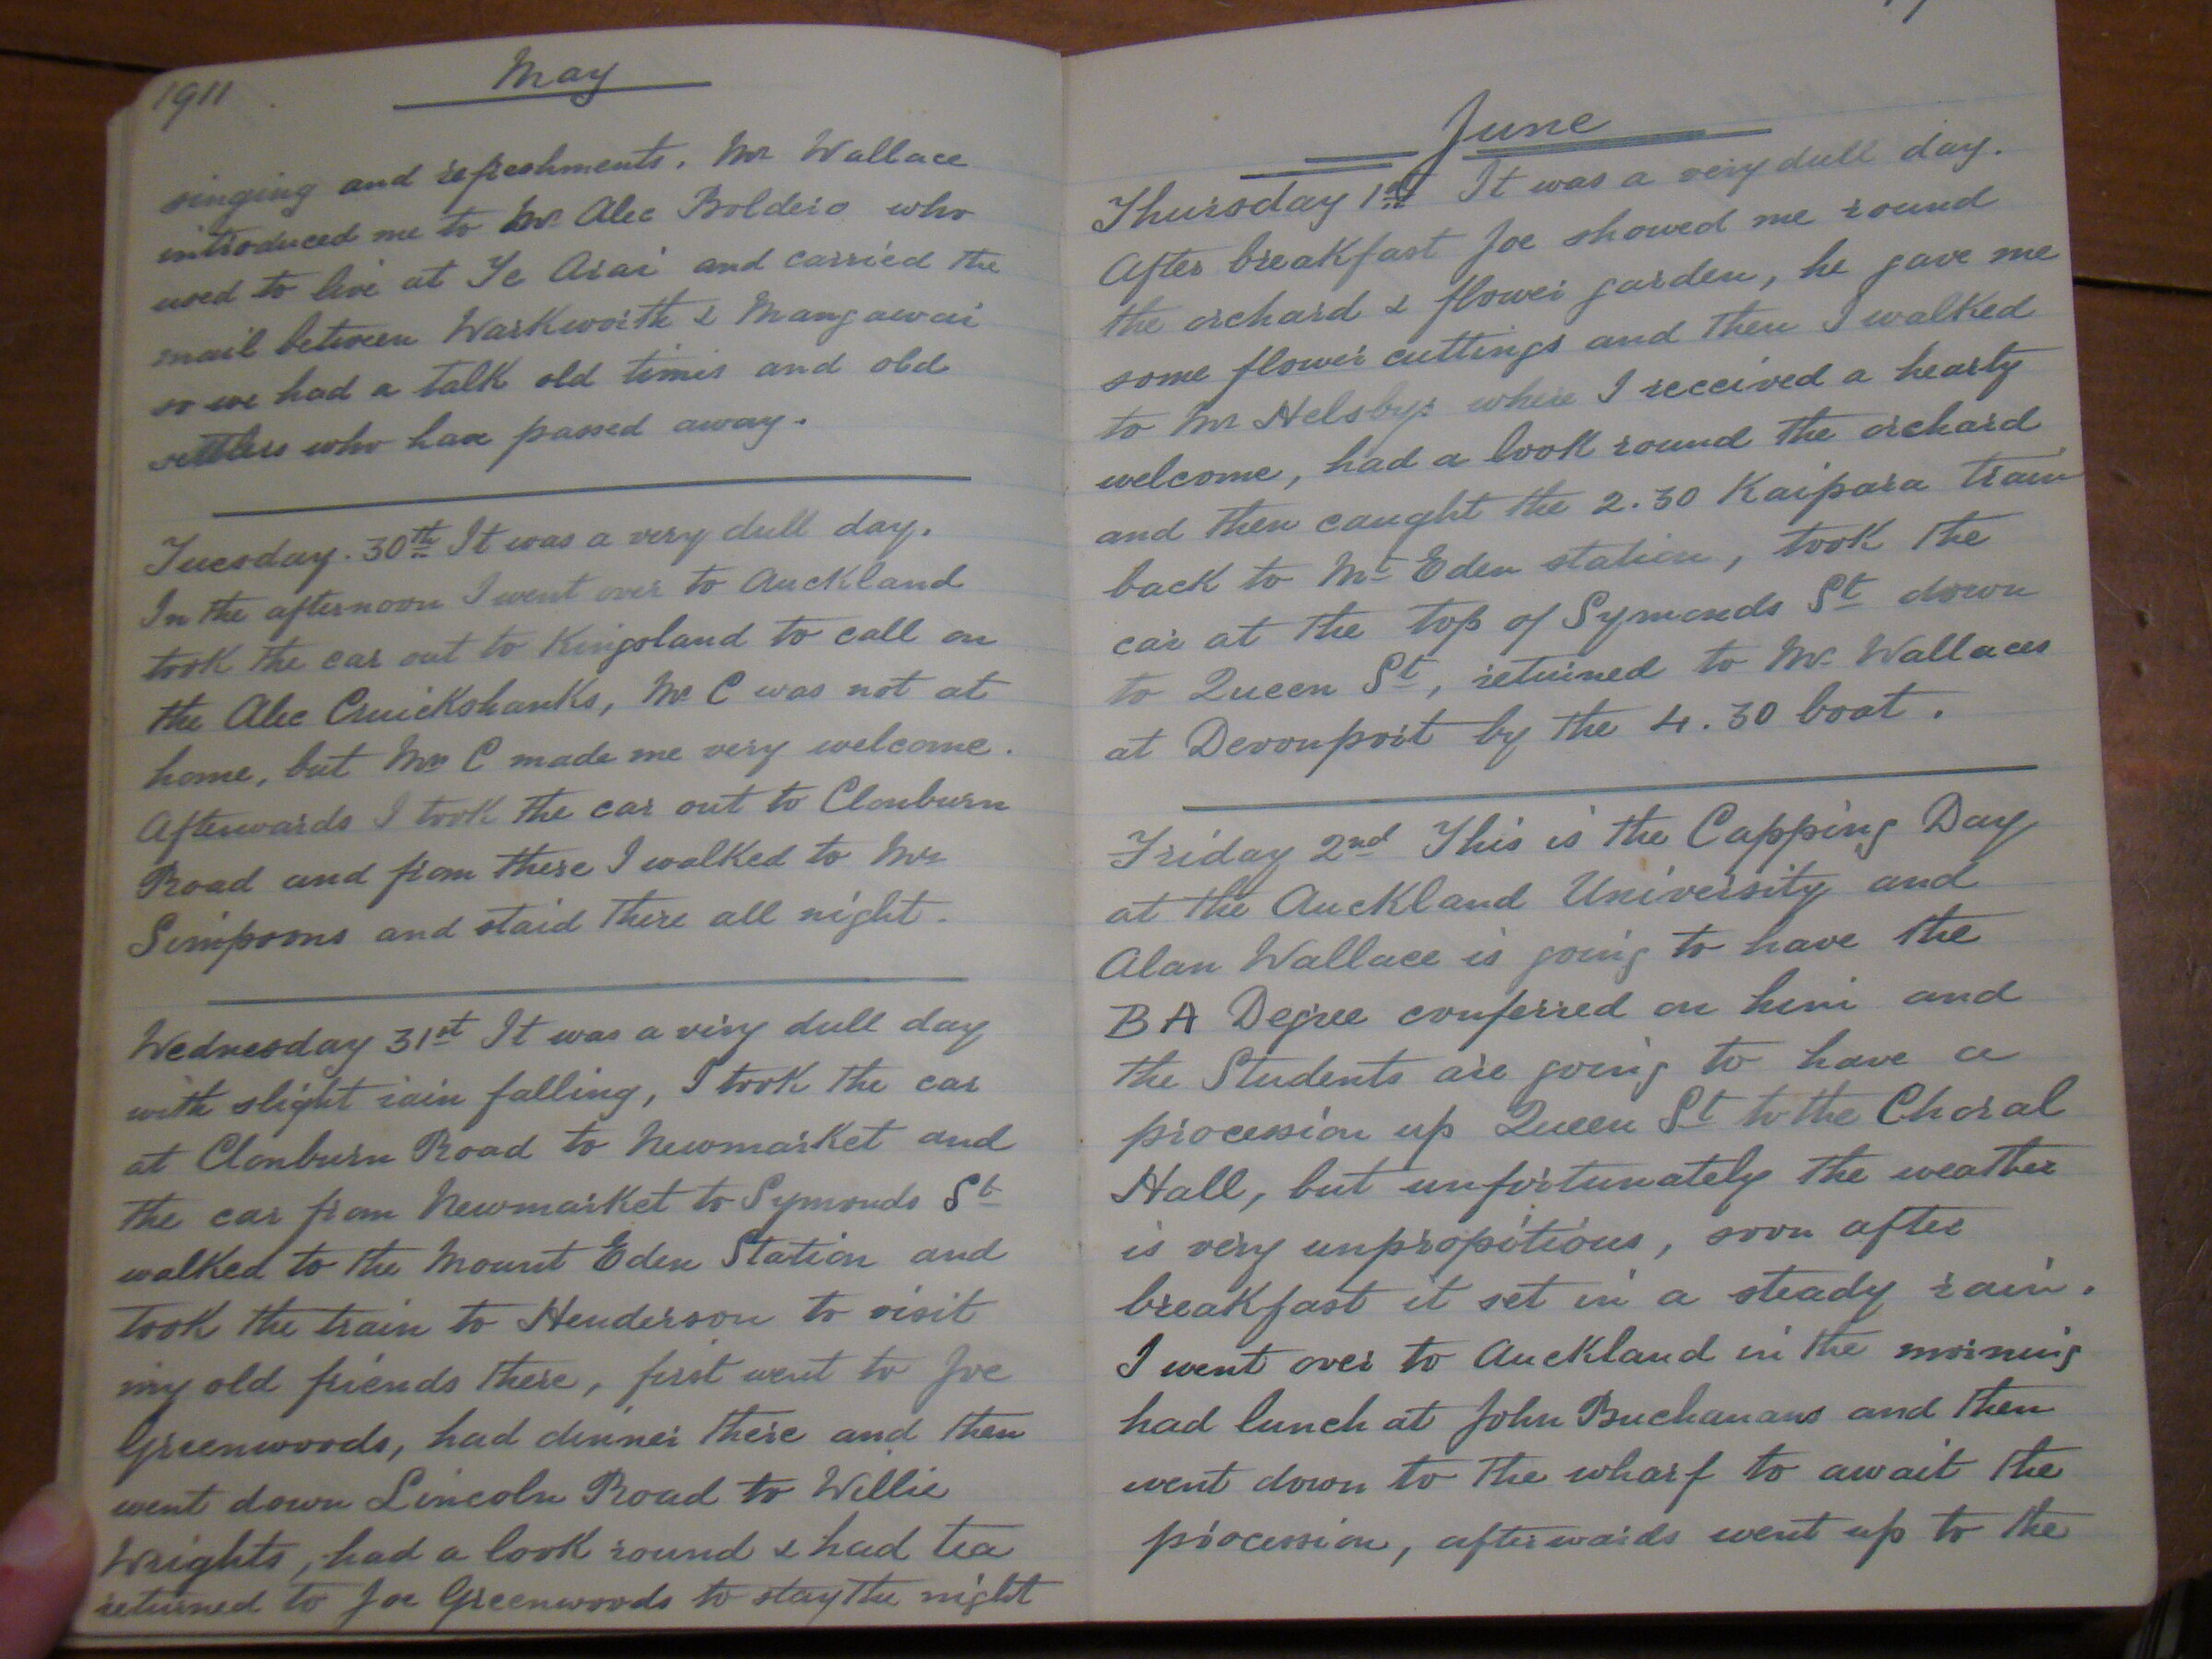 1911
May
singing and refreshments. Mr Wallace
introduced me to Mr Alec Boldero who
used to live at Te Arai and carried the
mail between Warkworth & Mangawai
so we had a talk old times and old
settlers who have passed away.
Tuesday. 30th It was a very dull day.
In the afternoon I went over to Auckland
took the car out to Kingsland to call on
the Alec Cruickshanks, Mr C was not at
home, but Mrs C made me very welcome.
Afterwards I took the car out to Clonburn
Road and from there I walked to Mrs
Simpsons and staid there all night.
Wednesday 31st It was a very dull day
with slight rain falling, I took the car
at Clonburn Road to Newmarket and
the car from Newmarket to Symonds St
walked to the Mount Eden Station and
took the train to Henderson to visit
my old friends there, first went to Joe
Greenwoods, had dinner there and then
went down Lincoln Road to Willie
Wrights, had a look round & had tea
returned to Joe Greenwoods to stay the night
June
Thursday 1st It was a very dull day.
After breakfast Joe showed me round
the orchard & flower garden, he gave me
some flower cuttings and then I walked
to Mr Helsbys where I received a hearty
welcome, had a look round the orchard
and then caught the 2.30 Kaipara train
back to Mt Eden station, took the
car at the top of Symonds St down
to Queen St, returned to Mr Wallaces
at Devonport by the 4.30 boat.
Friday 2nd This is the Capping Day
at the Auckland University and
Alan Wallace is going to have the
BA Degree conferred on him and
the Students are going to have a
procession up Queen St to the Choral
Hall, but unfortunately the weather
is very unpropitious, soon after
breakfast it set in a steady rain.
I went over to Auckland in the morning
had lunch at John Buchanans and then
went down to the wharf to await the
procession, afterwards went up to the